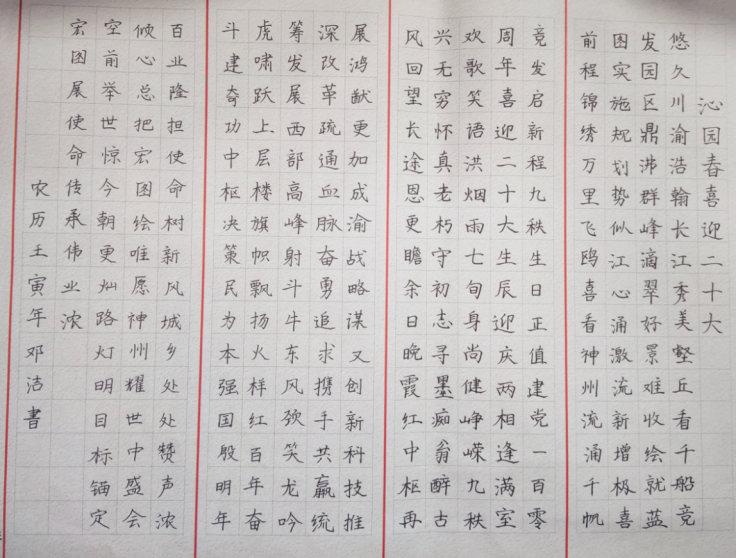 沁园春喜迎二十大
悠久川渝浩翰长江秀美壑丘看千船竞
发园区鼎沸群峰滴翠好景难收绘就蓝
图实施规划势似江心涌激流新增极喜
前程锦绣万里飞鸥喜看神州流涌千帆
竞发启新程九秩生日正值建党一百零
周年喜迎二十大生辰迎庆两相逢满室
欢歌笑语洪烟雨七旬身尚健峥嵘九秩
兴无穷怀真老朽守初志寻墨痴翁醉古
风回望长途恩更瞻余日晚霞红中枢再
展鸿猷更加成渝战略谋又创新科技推
深改革疏通血脉奋勇追求携手共赢统
筹发展西部高峰射斗牛东风劲笑龙吟
虎啸跃上层楼旗帜飘扬火样红百年奋
斗建奇功中枢决策民为本强国殷明年
百业隆担使命树新风城乡处处赞声浓
倾心总把宏图绘唯愿神州耀世中盛会
空前举世惊今朝更灿路灯明目标锚定
宏图展使命传承伟业浓
农历壬寅年邓洁書